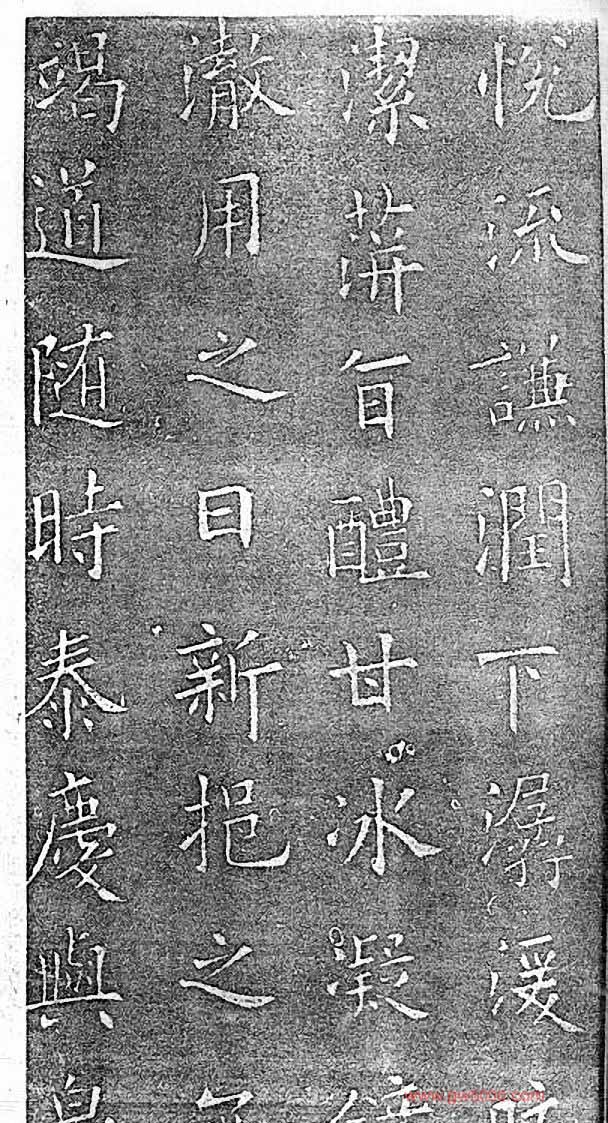 悅流謙潤下潺湲
潔蓱旨醴甘冰凝
澈用之日新挹之
竭道随時泰慶與